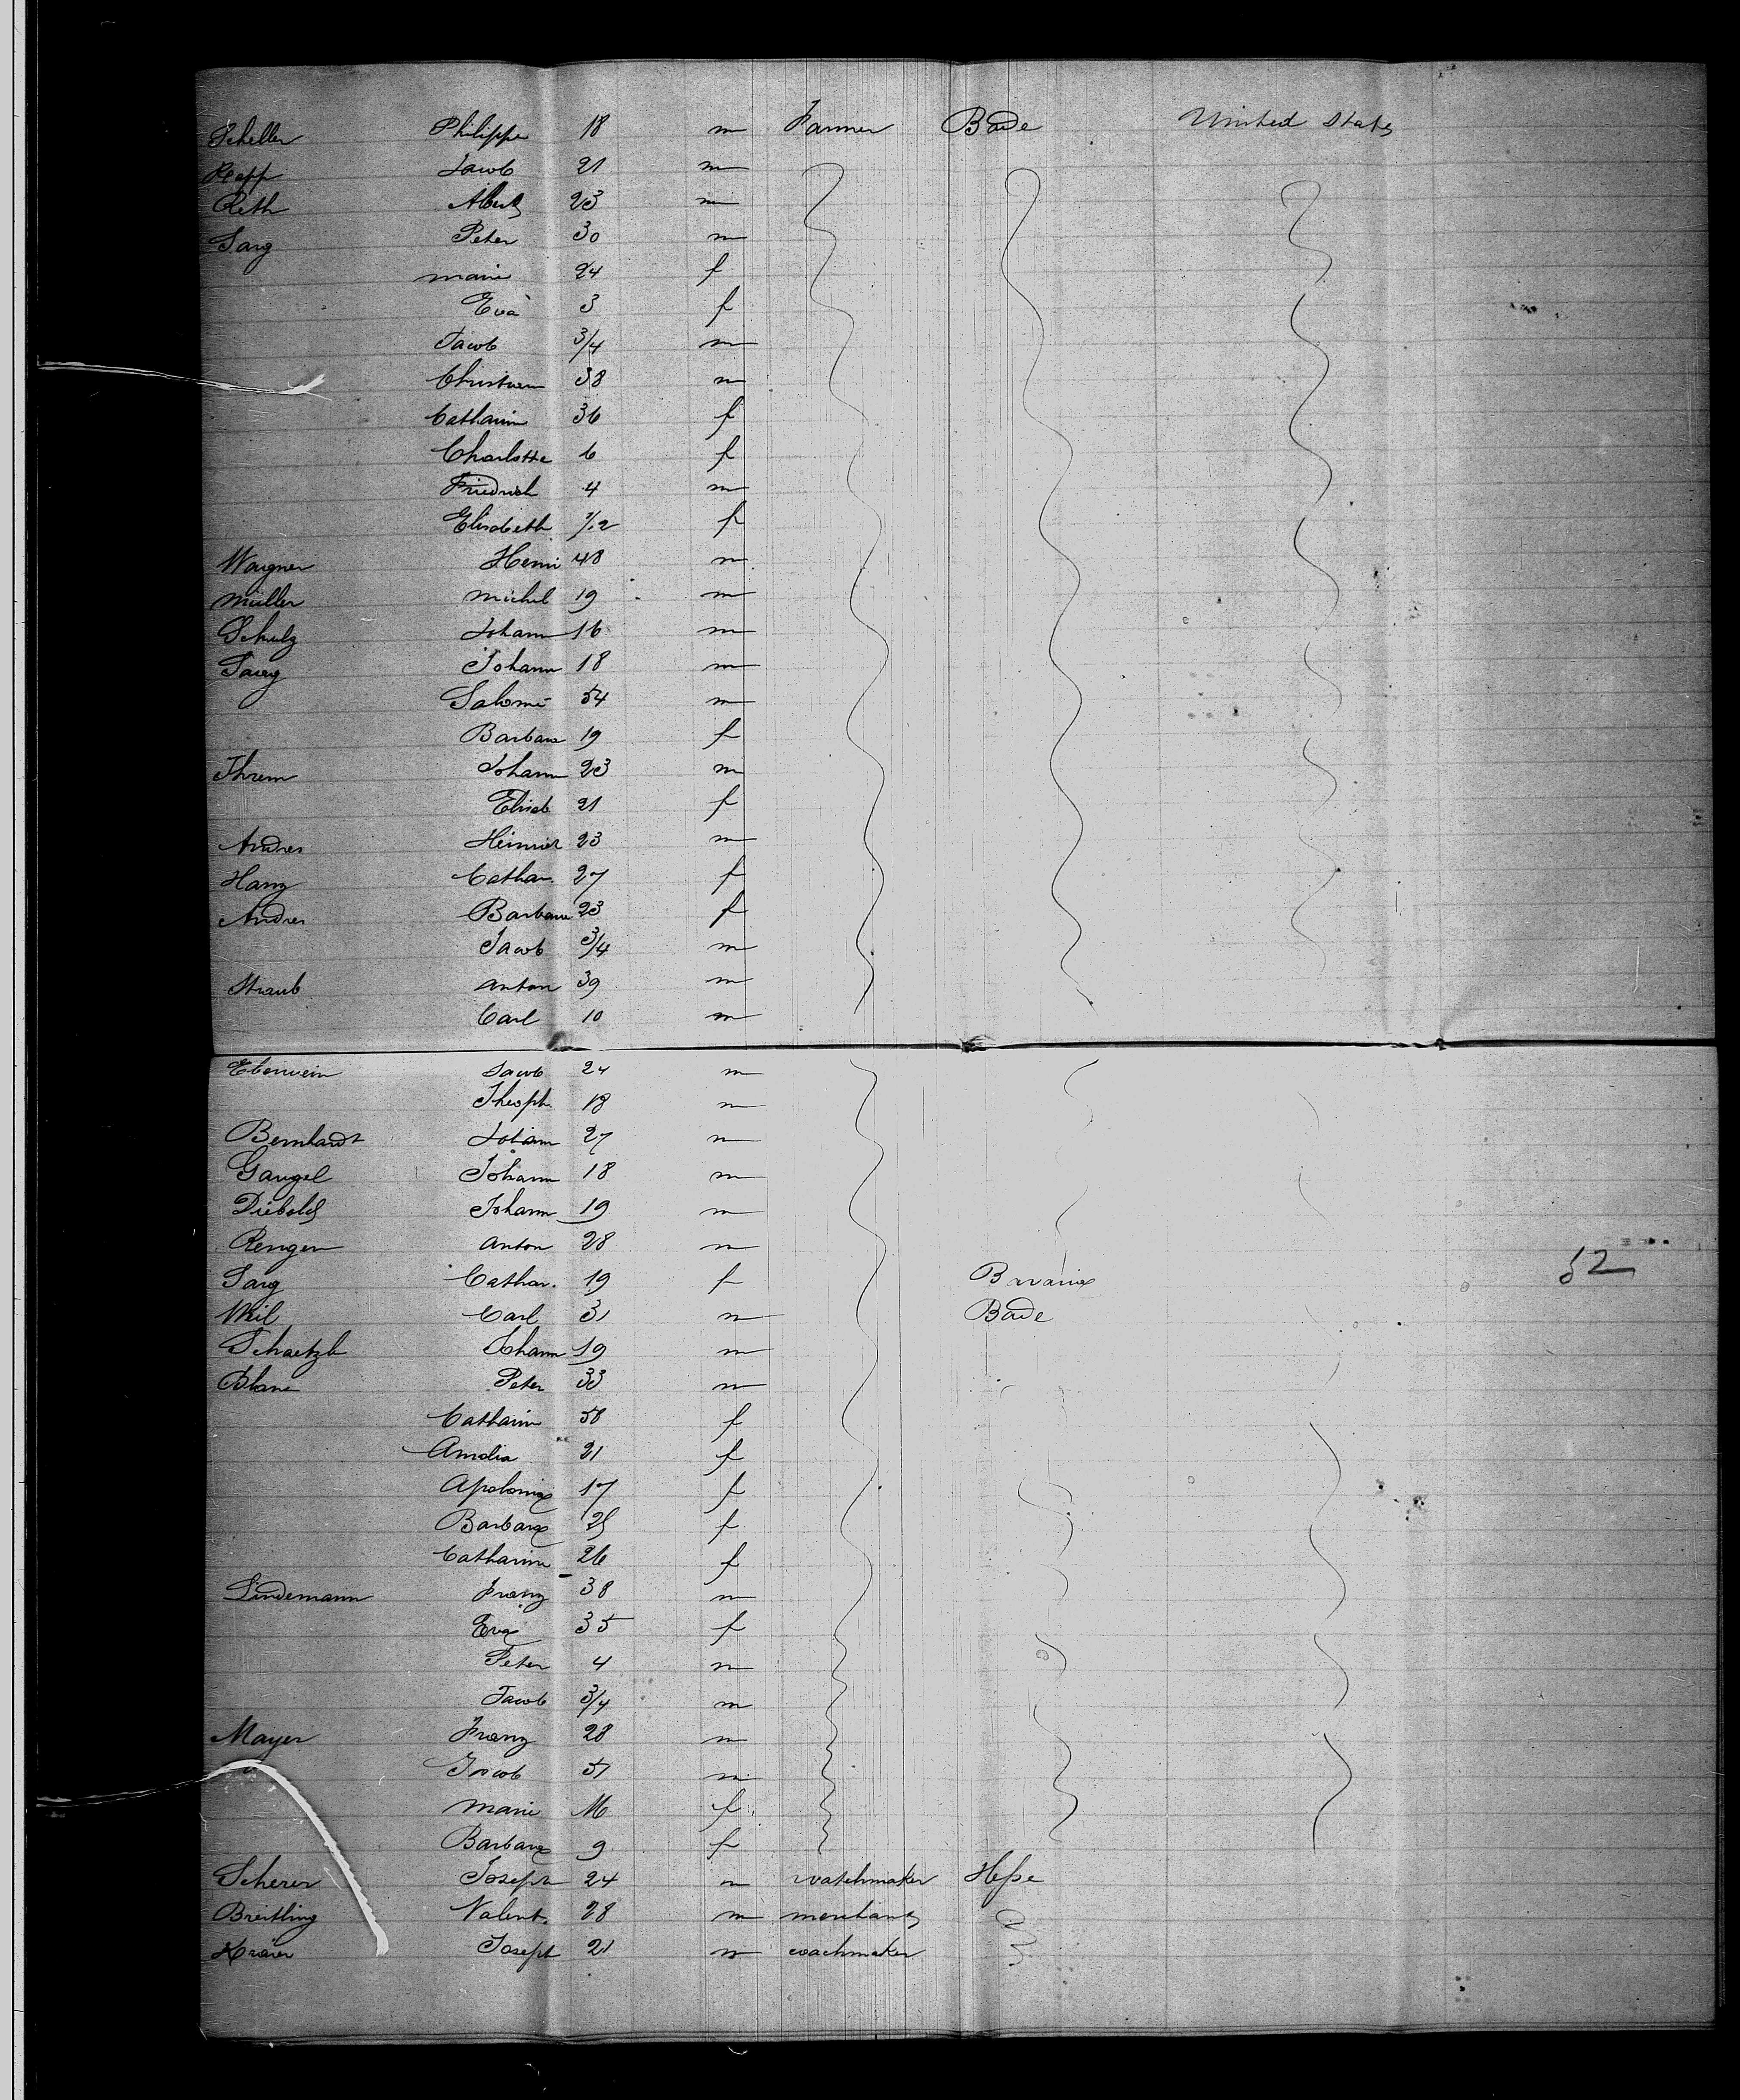 Scheller Philippe 18 m Farmer Bade United States
Repp Jacob 21 m
Reth Albert 23 m
Sarg Peter 30 m
marie 24 f
Eva 3 f
Jacob 3/4 m
Christian 38 m
Catharin 36 f
Charlotte 6 f
Friedrich 4 m
Elisabeth f
Wagner Henri 48 m
Müller michel 19 m
Schulz Johann 16 m
Sarg Johann 18 m
Salomé 54 m
Barbara 19 f
Ihrem Johann 23 m
Elisab 21 f
Andres Heinrich 23 m
Hanz Cathar. 27 f
Andres Barbara 23 f
Jacob 3/4 m
Straub anton 39 m
Carl 10 m
Eberwein Jacob 24 m
Theoph. 18 m
Bernhardt Johann 27 m
Gangel Johann 18 m
Diebold Johann 19 m
Renger anton 28 m
Sarg Cathar. 19 f Bavaria 52
Weil Carl 31 m Bade
Schaetzle Johann 19 m
Peter 33 m
Catharin 58 f
Amelia 21 f
Apolonia 17 f
Barbara 25 f
Catharine 26 f
Lindemann Franz 38 m
Eva 35 f
Peter 4 m
Jacob 3/4 m
Mayer Franz 28 m
Jacob m
marie f
Barbara 9 f
Scherer Joseph 24 m watchmaker Hesse
Breitling Valent. 28 m merchant
Joseph 21 m coachmaker